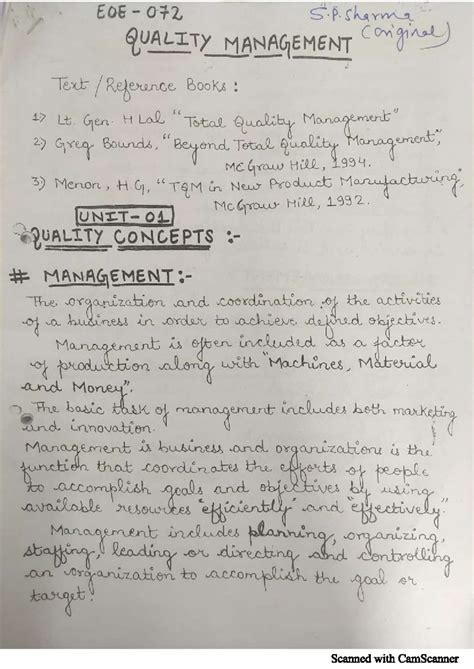 EOE-072
S.P. Sharma
(original)
QUALITY MANAGEMENT
Text / Reference Books :
1) Lt. Gen. H Lal "Total Quality Management"
2) Greg Bounds, "Beyond Total Quality Management",
McGraw Hill, 1994.
3) Menon, H G, "TQM in New Product Manufacturing,
McGraw Hill, 1992.
UNIT-01
QUALITY CONCEPTS :-
# MANAGEMENT:-
The organization and coordination of the activities
of a business in order to achieve defined objectives.
Management is often included as a factor
of production along with "Machines, Material
and Money".
The basic task of management includes both marketing
and innovation.
Management is business and organizations is the
function that coordinates the efforts of people
to accomplish goals and objectives by using
available resources "efficiently" and "effectively."
Management includes planning, organizing,
staffing, leading or directing and controlling
an organization to accomplish the goal or
target.
Scanned with CamScanner